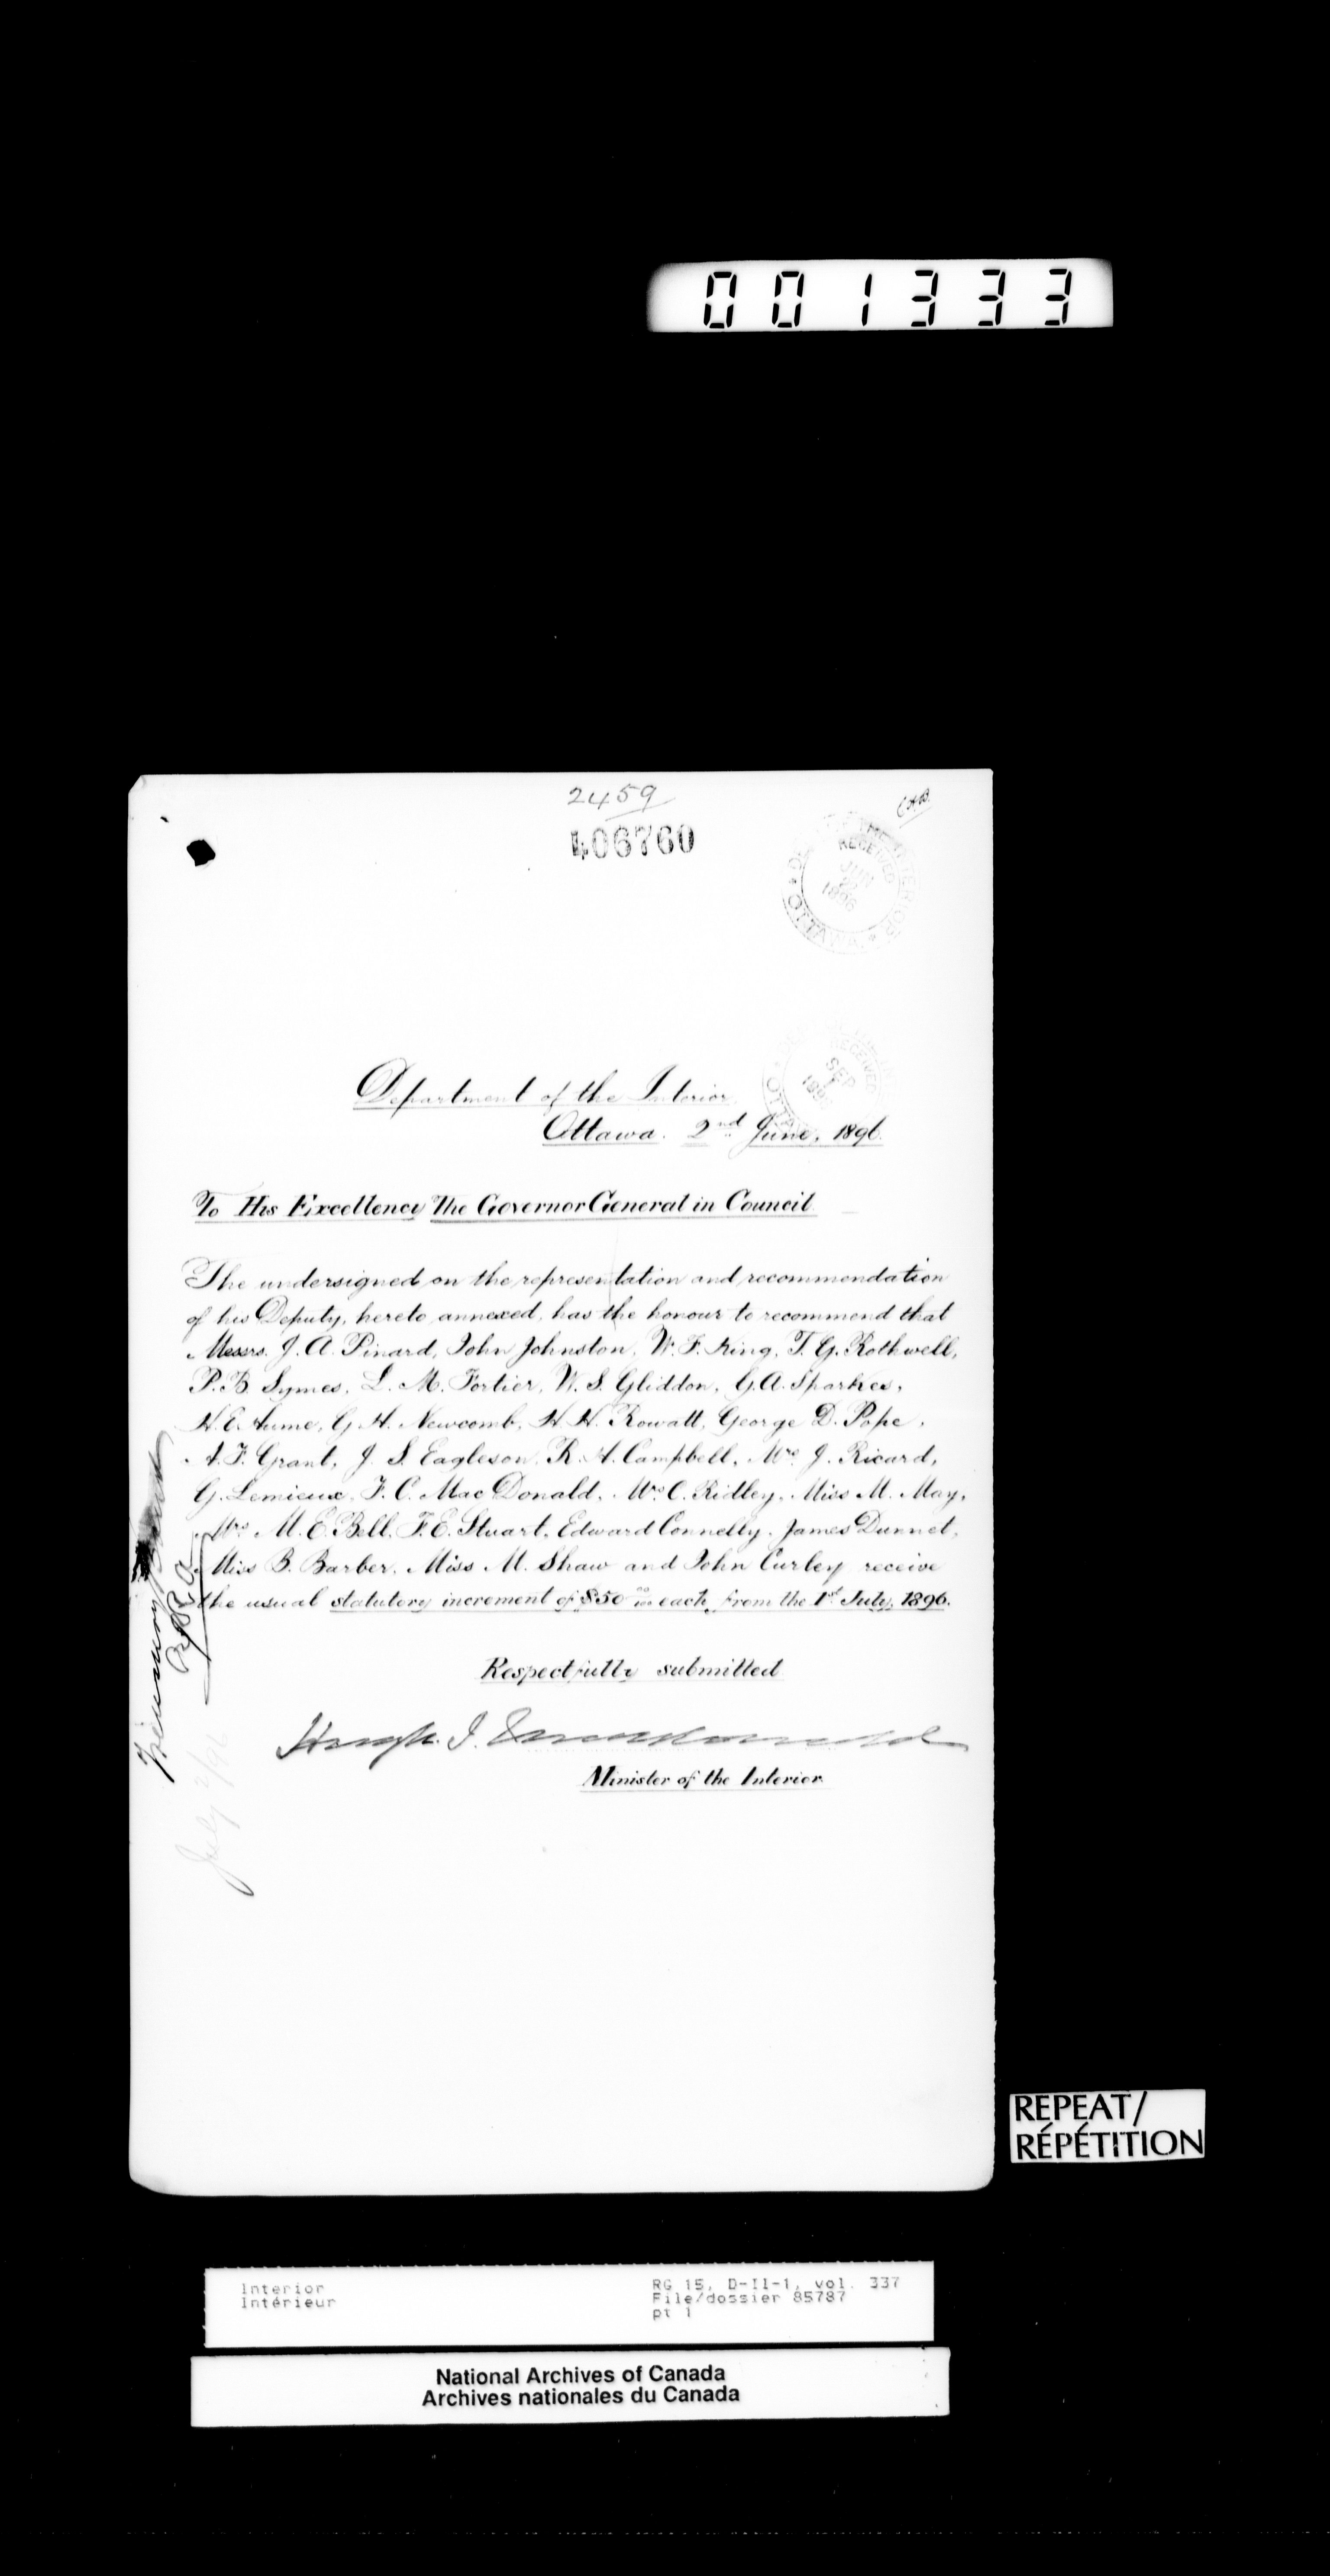 001333
2459
406760
RECEIVED
JUN
2
1896
OTTAWA
RECEIVED
SEP
Department of the Interior
Ottawa. 2nd June, 1896.
To His Excellency The Governor General in Council.
The undersigned on the representation and recommendation
of his Deputy, hereto annexed, has the honour to recommend that
Messrs. J. A. Pinard, John Johnston, W. F. King, T. G. Rothwell,
P. B. Symes, L. M. Fortier, W. S. Gliddon, G. A. Sparkes,
H. E. Hume, G. H. Newcomb, H. H. Rowatt, George D. Pope,
A. F. Grant, J. S. Eagleson, R. H. Campbell, Mrs. J. Ricard,
G. Lemieux, F. C. MacDonald, Mrs. C. Ridley, Miss M. May,
Mrs M. E. Bell, F. E. Stuart, Edward Connelly, James Dunnet,
Miss B. Barber, Miss M. Shaw and John Curley receive
the usual statutory increment of $50 00/100 each, from the 1st July, 1896.
Respectfully submitted
Hugh J. Macdonald
Minister of the Interior.
Treasury Board
July 2/96
REPEAT/
RÉPÉTITION
Interior
Intérieur
RG 15, D-II-1, vol. 337
File/dossier 85787
pt 1
National Archives of Canada
Archives nationales du Canada